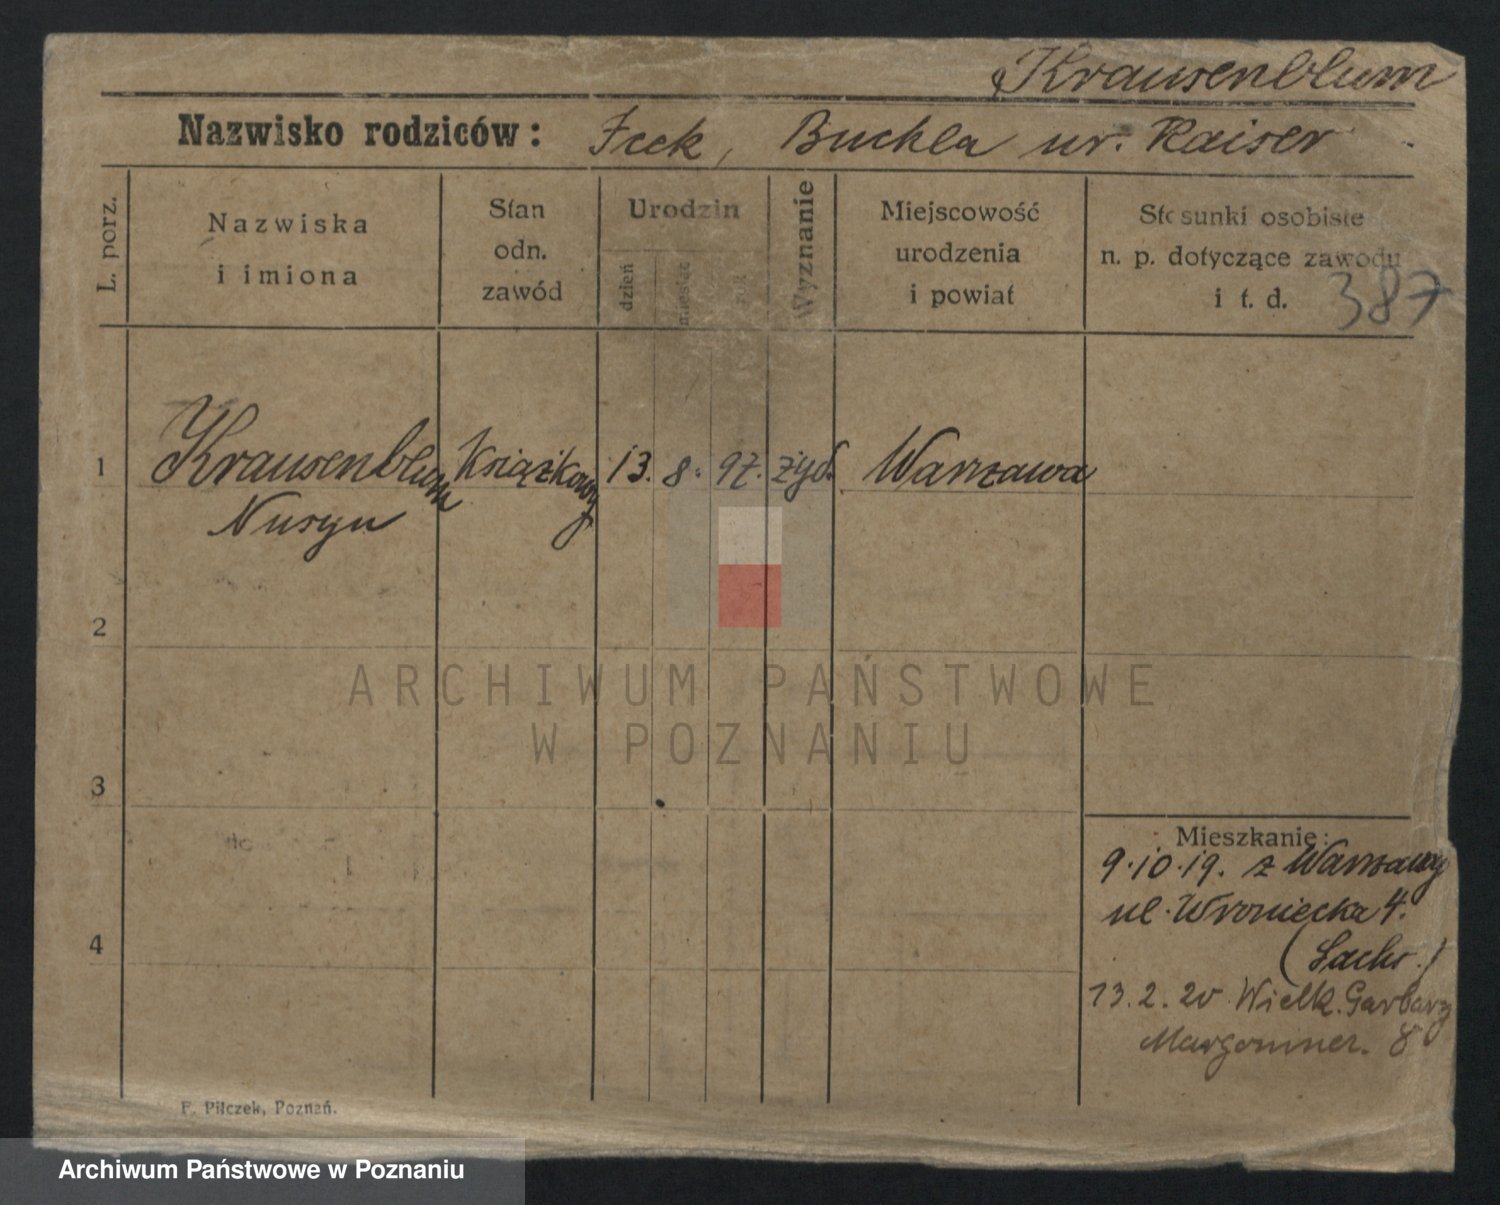 Krausenblum
Nazwisko rodziców: Icek, Buchla ur. Kaiser
L. porz.
Nazwiska
i imiona
Stan
odn.
zawód
Urodzin
dzień
miesiąc
rok
Wyznanie
Miejscowość
urodzenia
i powiat
Stosunki osobiste
n. p. dotyczące zawodu
i t. d.
387
1 Krausenblum Książkowy 13. 8. 97. żyd. Warszawa
Nusyn
2
3
4
Mieszkanie:
9.10.19. z Warszawy
ul. Wroniecka 4.
(Sachs.)
13.2.20 Wielk. Garbary
Margoniner. 8
F. Pilczek, Poznań.
ARCHIWUM PAŃSTWOWE
W POZNANIU
Archiwum Państwowe w Poznaniu